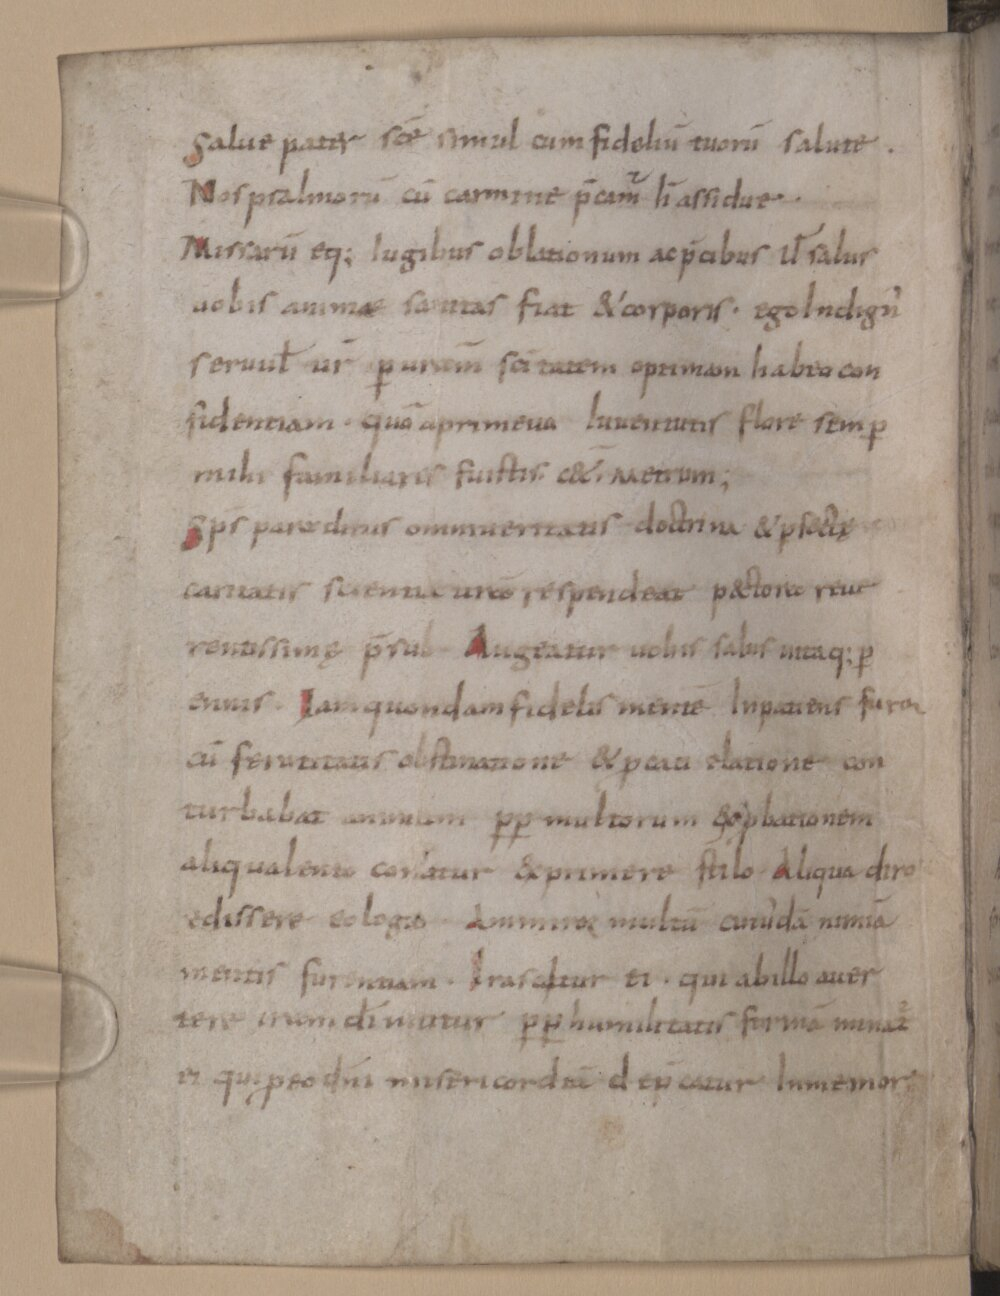 Salue pater sc̄e simul cum fideliū tuorū salute .
Nos psalmorū cū carmine p̄cam̄ h̄ assidue .
Missarū eq; Iugibus oblationum ac p̄cibus ul̄ salus
uobis animae sanitas fiat & corporis . ego Indign᾽
seruul̄ ur̄ ꝑ uram̄ sci tatem optimam habeo con
fidentiam . quā a primeua Iuuentutis flore semꝑ
mihi familiaris fuistis . c&̄ . Metrum ;
Sp̄s paraclitus omni ueritatis doctrina & ꝑfectę
caritatis scientia urō respendeat pectore reue
rentissimę p̄sul . Augeatur uobis salus uitaq; ꝑ
ennis . Iam quondam fidelis mentē Inpatiens furor
cū seruitatis obstinatione & peccati elatione con
turbabat animum ꝓꝑ multorum &
aliqualento conatur &primere stilo . Aliqua diro
edissere eologio . Ammiror multū cuiusdā nimiā
mentis furentiam . Irascitur ei . qui ab illo auer
tere iram dī nititur ꝓꝑ humilitatis formā minat᷑
ei qui ꝑ eo dn̄i misericordiā dep̄catur Inmemor